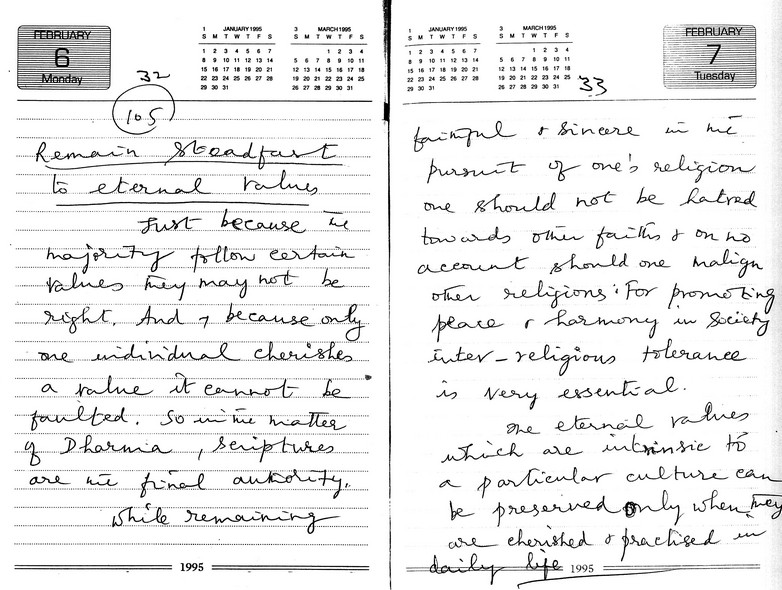 FEBRUARY
6
Monday
1 JANUARY 1995
S M T W T F S
1 2 3 4 5 6 7
8 9 10 11 12 13 14
15 16 17 18 19 20 21
22 23 24 25 26 27 28
29 30 31
3 MARCH 1995
S M T W T F S
1 2 3 4
5 6 7 8 9 10 11
12 13 14 15 16 17 18
19 20 21 22 23 24 25
26 27 28 29 30 31
32
105
Remain steadfast
to eternal values
Just because the
majority follow certain
values they may not be
right. And because only
one individual cherishes
a value it cannot be
faulted. So in the matter
of Dharma, scriptures
are the final authority.
While remaining
1995
1 JANUARY 1995
S M T W T F S
1 2 3 4 5 6 7
8 9 10 11 12 13 14
15 16 17 18 19 20 21
22 23 24 25 26 27 28
29 30 31
3 MARCH 1995
S M T W T F S
1 2 3 4
5 6 7 8 9 10 11
12 13 14 15 16 17 18
19 20 21 22 23 24 25
26 27 28 29 30 31
33
FEBRUARY
7
Tuesday
faithful & sincere in the
pursuit of one's religion
one should not be hatred
towards other faiths & on no
account should one malign
other religions. For promoting
peace & harmony in Society
inter-religious tolerance
is very essential.
The eternal values
which are intrinsic to
a particular culture can
be preserved only when they
are cherished & practised in
daily life
1995